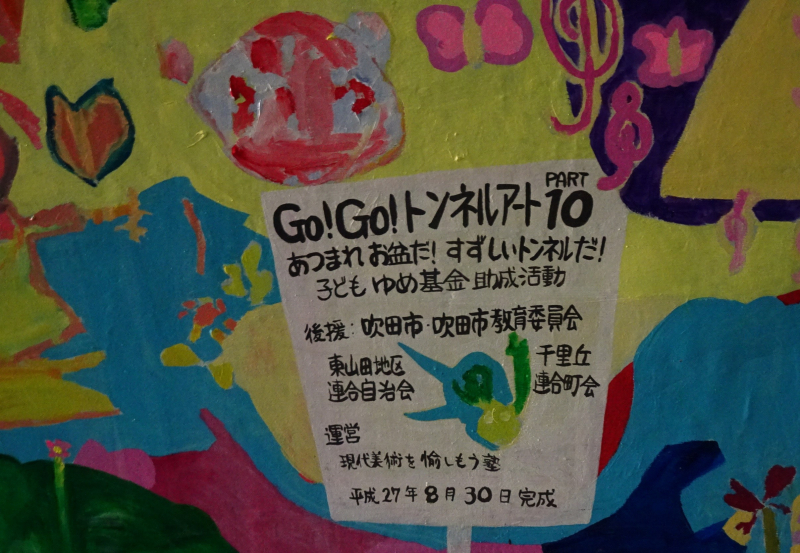 Go! Go! トンネルアート PART 10
あつまれ お盆だ! すずしいトンネルだ!
子ども ゆめ基金 助成活動
後援: 吹田市・吹田市教育委員会
東山田地区
連合自治会
千里丘
連合町会
運営
現代美術を愉しもう塾
平成27年8月30日完成